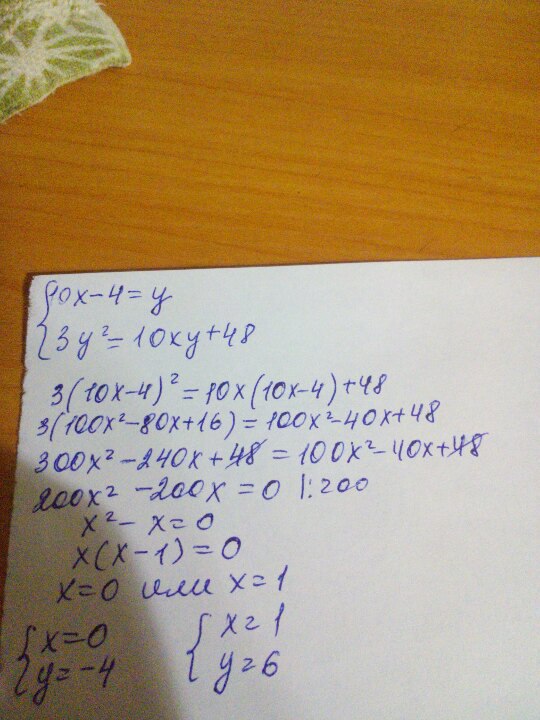 {10x-4=y
{3y²=10xy+48
3(10x-4)²=10x(10x-4)+48
3(100x²-80x+16)=100x²-40x+48
300x²-240x+48=100x²-40x+48
200x²-200x=0 |:200
x²-x=0
x(x-1)=0
x=0 или x=1
{x=0 {x=1
{y=-4 {y=6